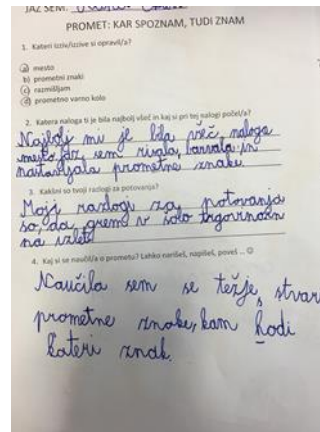 JAZ SEM:
PROMET: KAR SPOZNAM, TUDI ZNAM
1. Kateri izziv/izzive si opravil/a?
a) mesto
b) prometni znaki
c) razmišljam
d) prometno varno kolo
2. Katera naloga ti je bila najbolj všeč in kaj si pri tej nalogi počel/a?
Najbolj mi je bila všeč naloga
mesto, jaz sem risala, barvala in
nastavljala prometne znake.
3. Kakšni so tvoji razlogi za potovanja?
Moji razlogi za potovanja
so, da grem v šolo trgovino in
na izlet.
4. Kaj si se naučil/a o prometu? Lahko narišeš, napišeš, poveš ... ☺
Naučila sem se težje stvari
prometne znake, kam hodi
kateri znak.